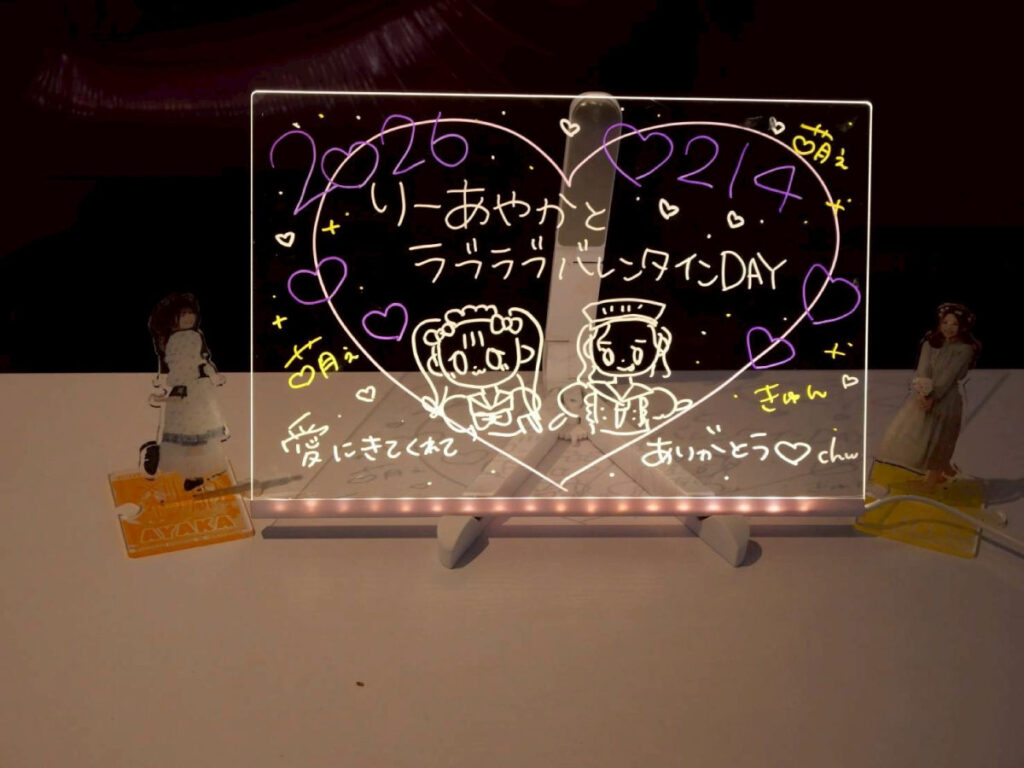 2026 ♡214
りーあやかと
ラブラブバレンタインDAY
萌え
萌え
きゅん
愛にきてくれて
ありがとう♡chu
AYAKA